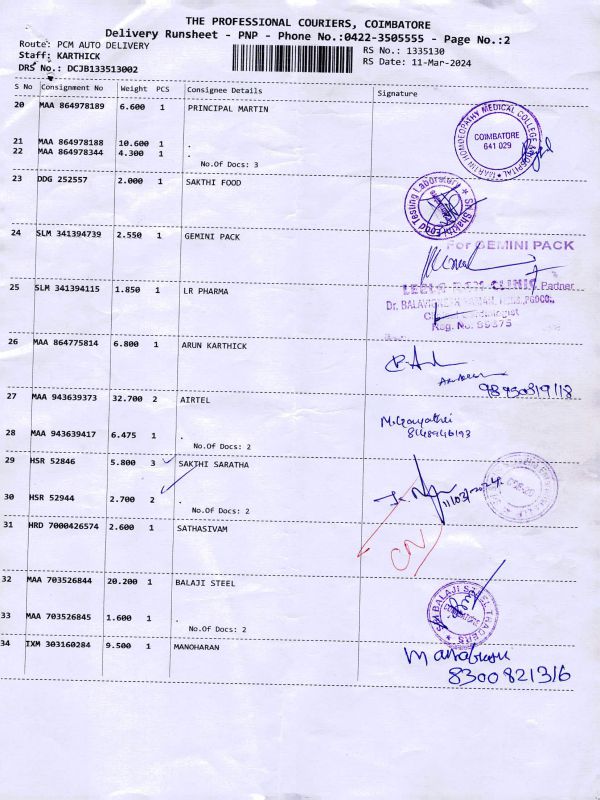 THE PROFESSIONAL COURIERS, COIMBATORE
Delivery Runsheet - PNP - Phone No.:0422-3505555 - Page No.:2
Route: PCM AUTO DELIVERY RS No.: 1335130
Staff: KARTHICK RS Date: 11-Mar-2024
DRS No.: DCJB133513002
S No Consignment No Weight PCS Consignee Details Signature
20 MAA 864978189 6.600 1 PRINCIPAL MARTIN
MARTIN HOMOEOPATHY MEDICAL COLLEGE & HOSPITAL
COIMBATORE
641 029
21 MAA 864978188 10.600 1 .
22 MAA 864978344 4.300 1 .
No.Of Docs: 3
23 DDG 252557 2.000 1 SAKTHI FOOD
Sri Shakthi Food Testing Laboratory
24 SLM 341394739 2.550 1 GEMINI PACK
For GEMINI PACK
Partner
25 SLM 341394115 1.850 1 LR PHARMA
Reg. No. 89375
26 MAA 864775814 6.800 1 ARUN KARTHICK
27 MAA 943639373 32.700 2 AIRTEL
M. Gayathri
8148946193
28 MAA 943639417 6.475 1 .
No.Of Docs: 2
29 HSR 52846 5.800 3 SAKTHI SARATHA
11/03/2024
30 HSR 52944 2.700 2 .
No.Of Docs: 2
31 HRD 7000426574 2.600 1 SATHASIVAM
CN
32 MAA 703526844 20.200 1 BALAJI STEEL
SRI BALAJI STEEL TRADERS
33 MAA 703526845 1.600 1 .
No.Of Docs: 2
34 IXM 303160284 9.500 1 MANOHARAN
8300821316